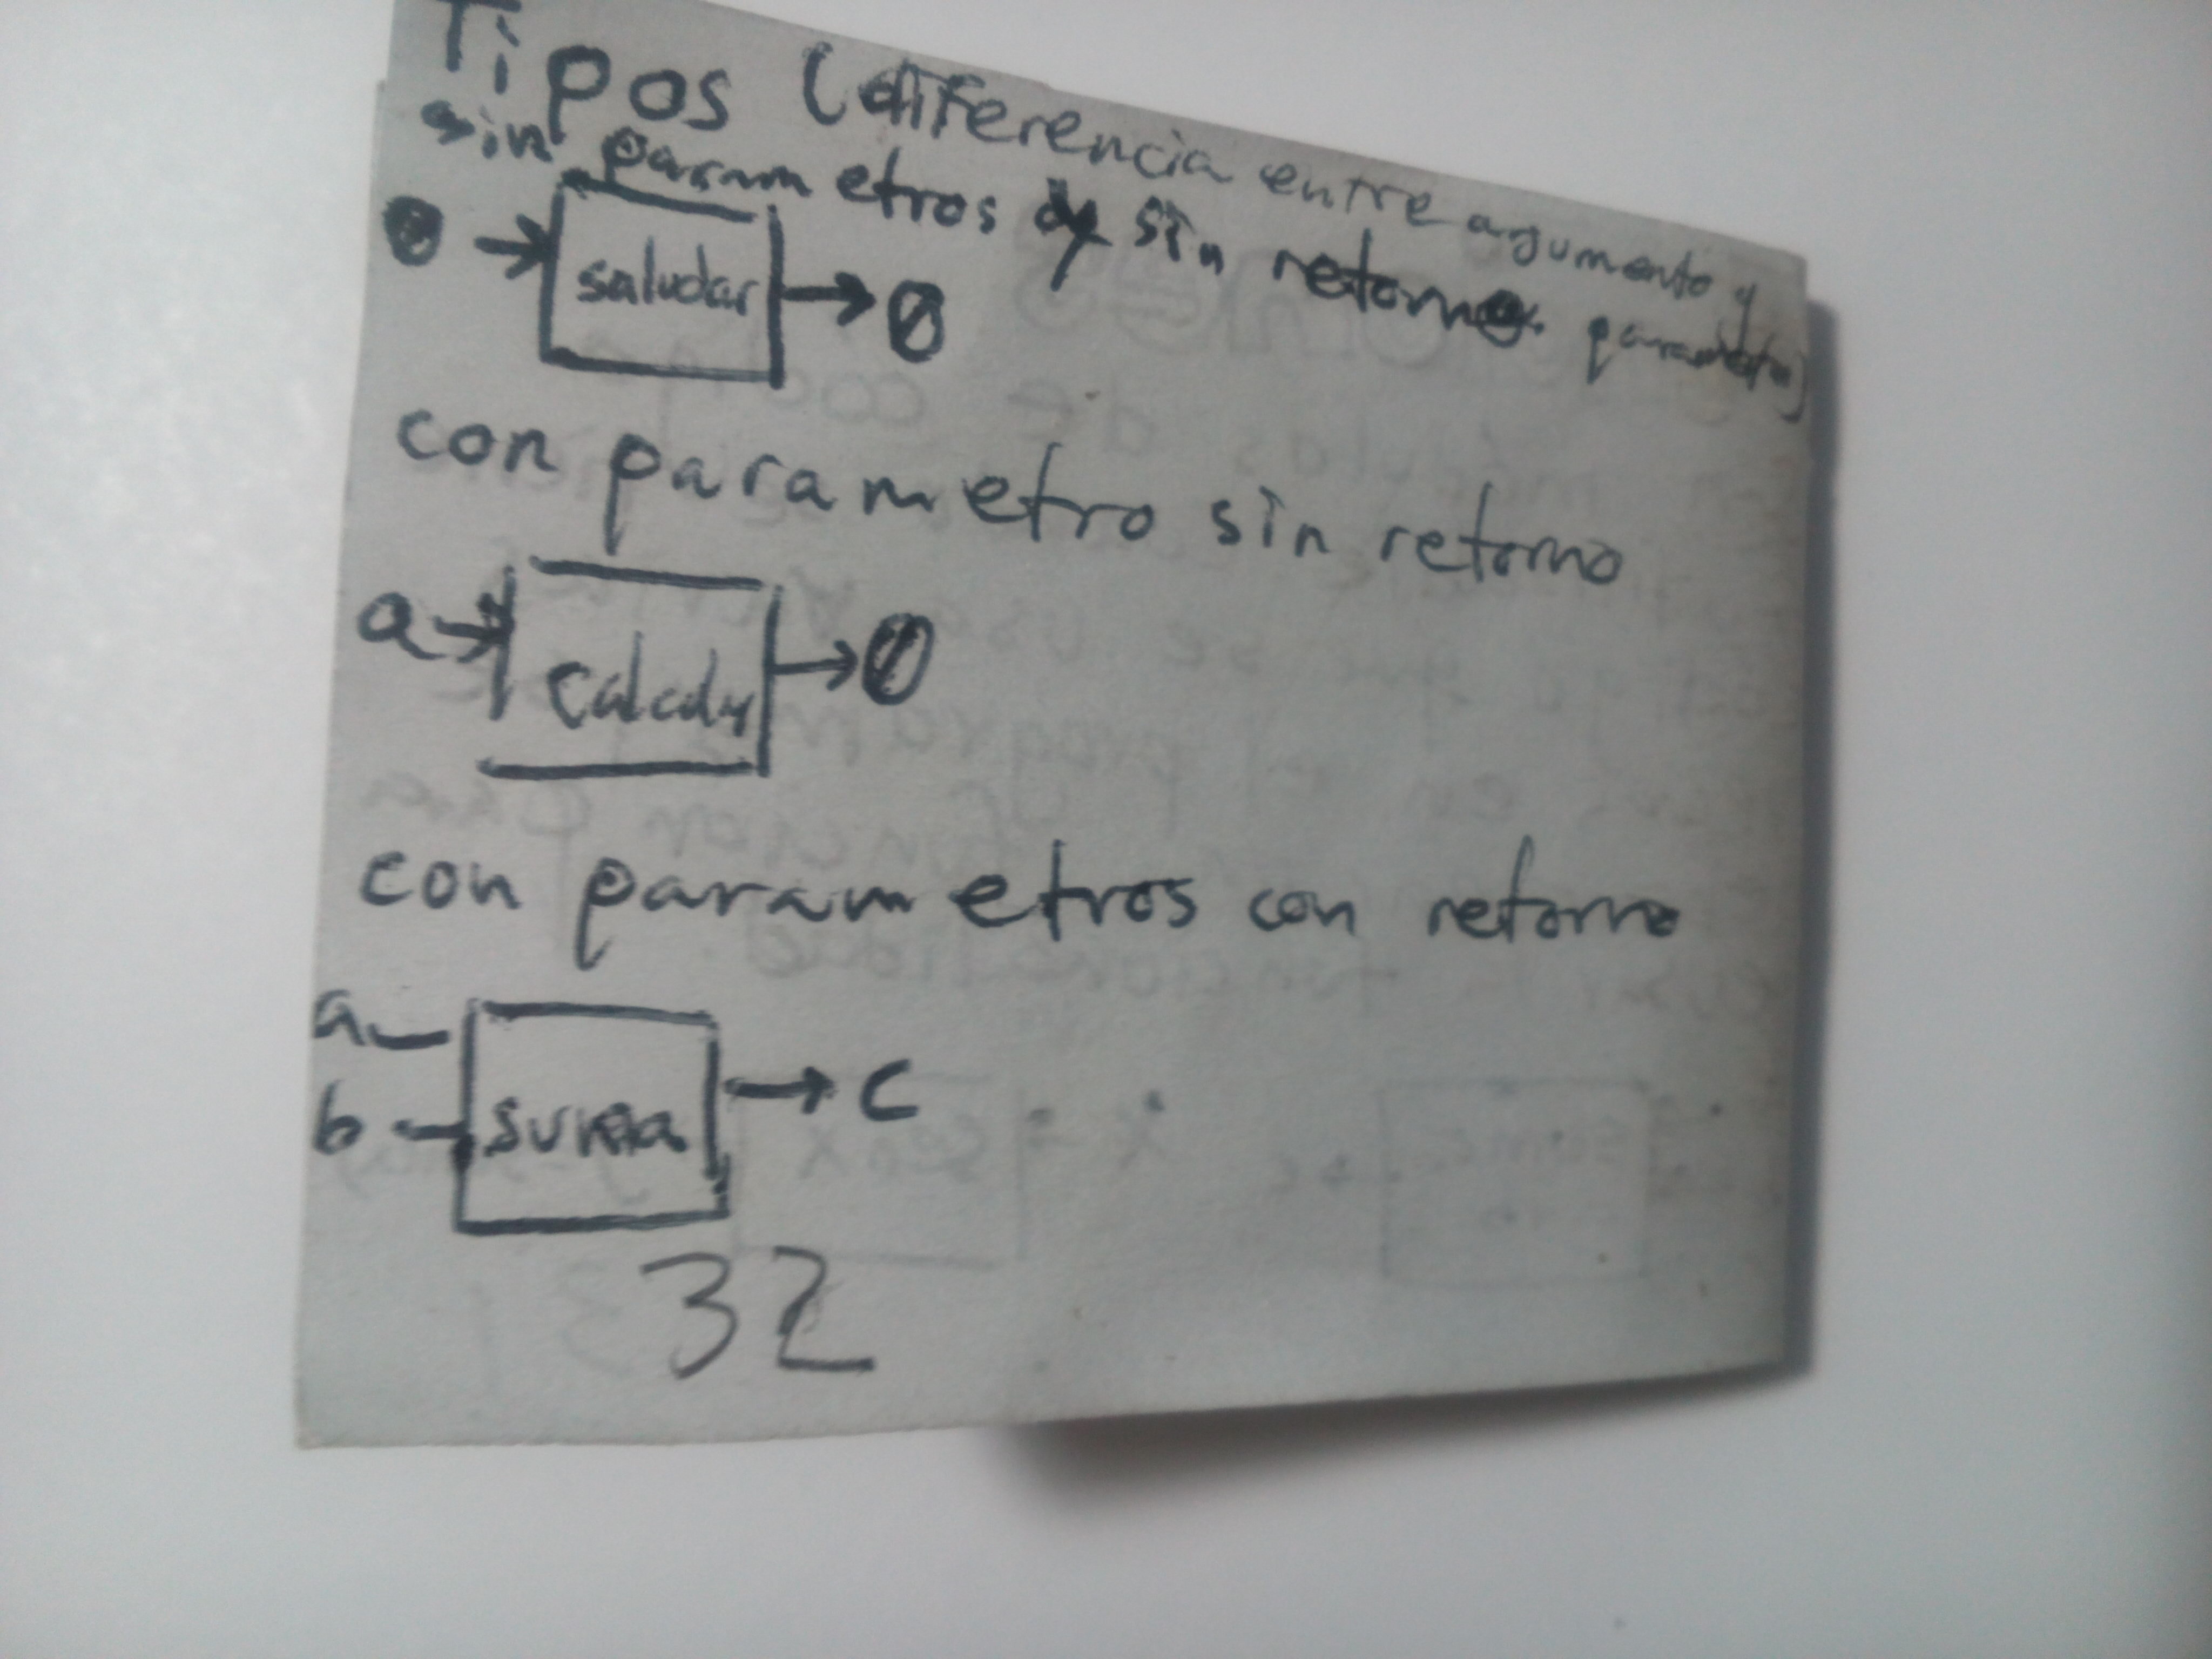 Tipos (diferencia entre agumento y
parametro)
sin parametros y sin retorno.
0 → saludar → 0
con parametro sin retorno
a → → 0
con parametros con retorno
a
b suma → c
32